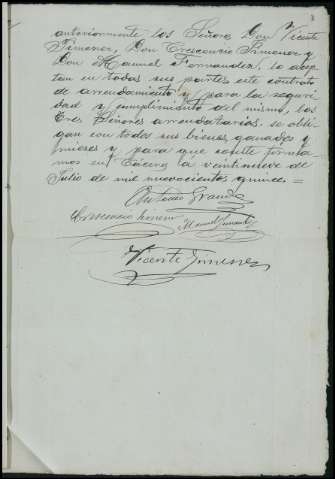 anteriormente los Señores Don Vicente
Jimenez, Don Crescencio Jimenez y
Don Manuel Fernandez, lo acep-
tan en todas sus partes este contrato
de arrendamiento y para la seguri-
dad y cumplimiento del mismo, los
tres Señores arrendatarios, se obli-
gan con todos sus bienes ganados y
y para que conste firma-
mos en a veintinueve de
Julio de mil novecientos quince.=
Antonio Grande
Crescencio Jimenez Manuel Fernandez
Vicente Jimenez